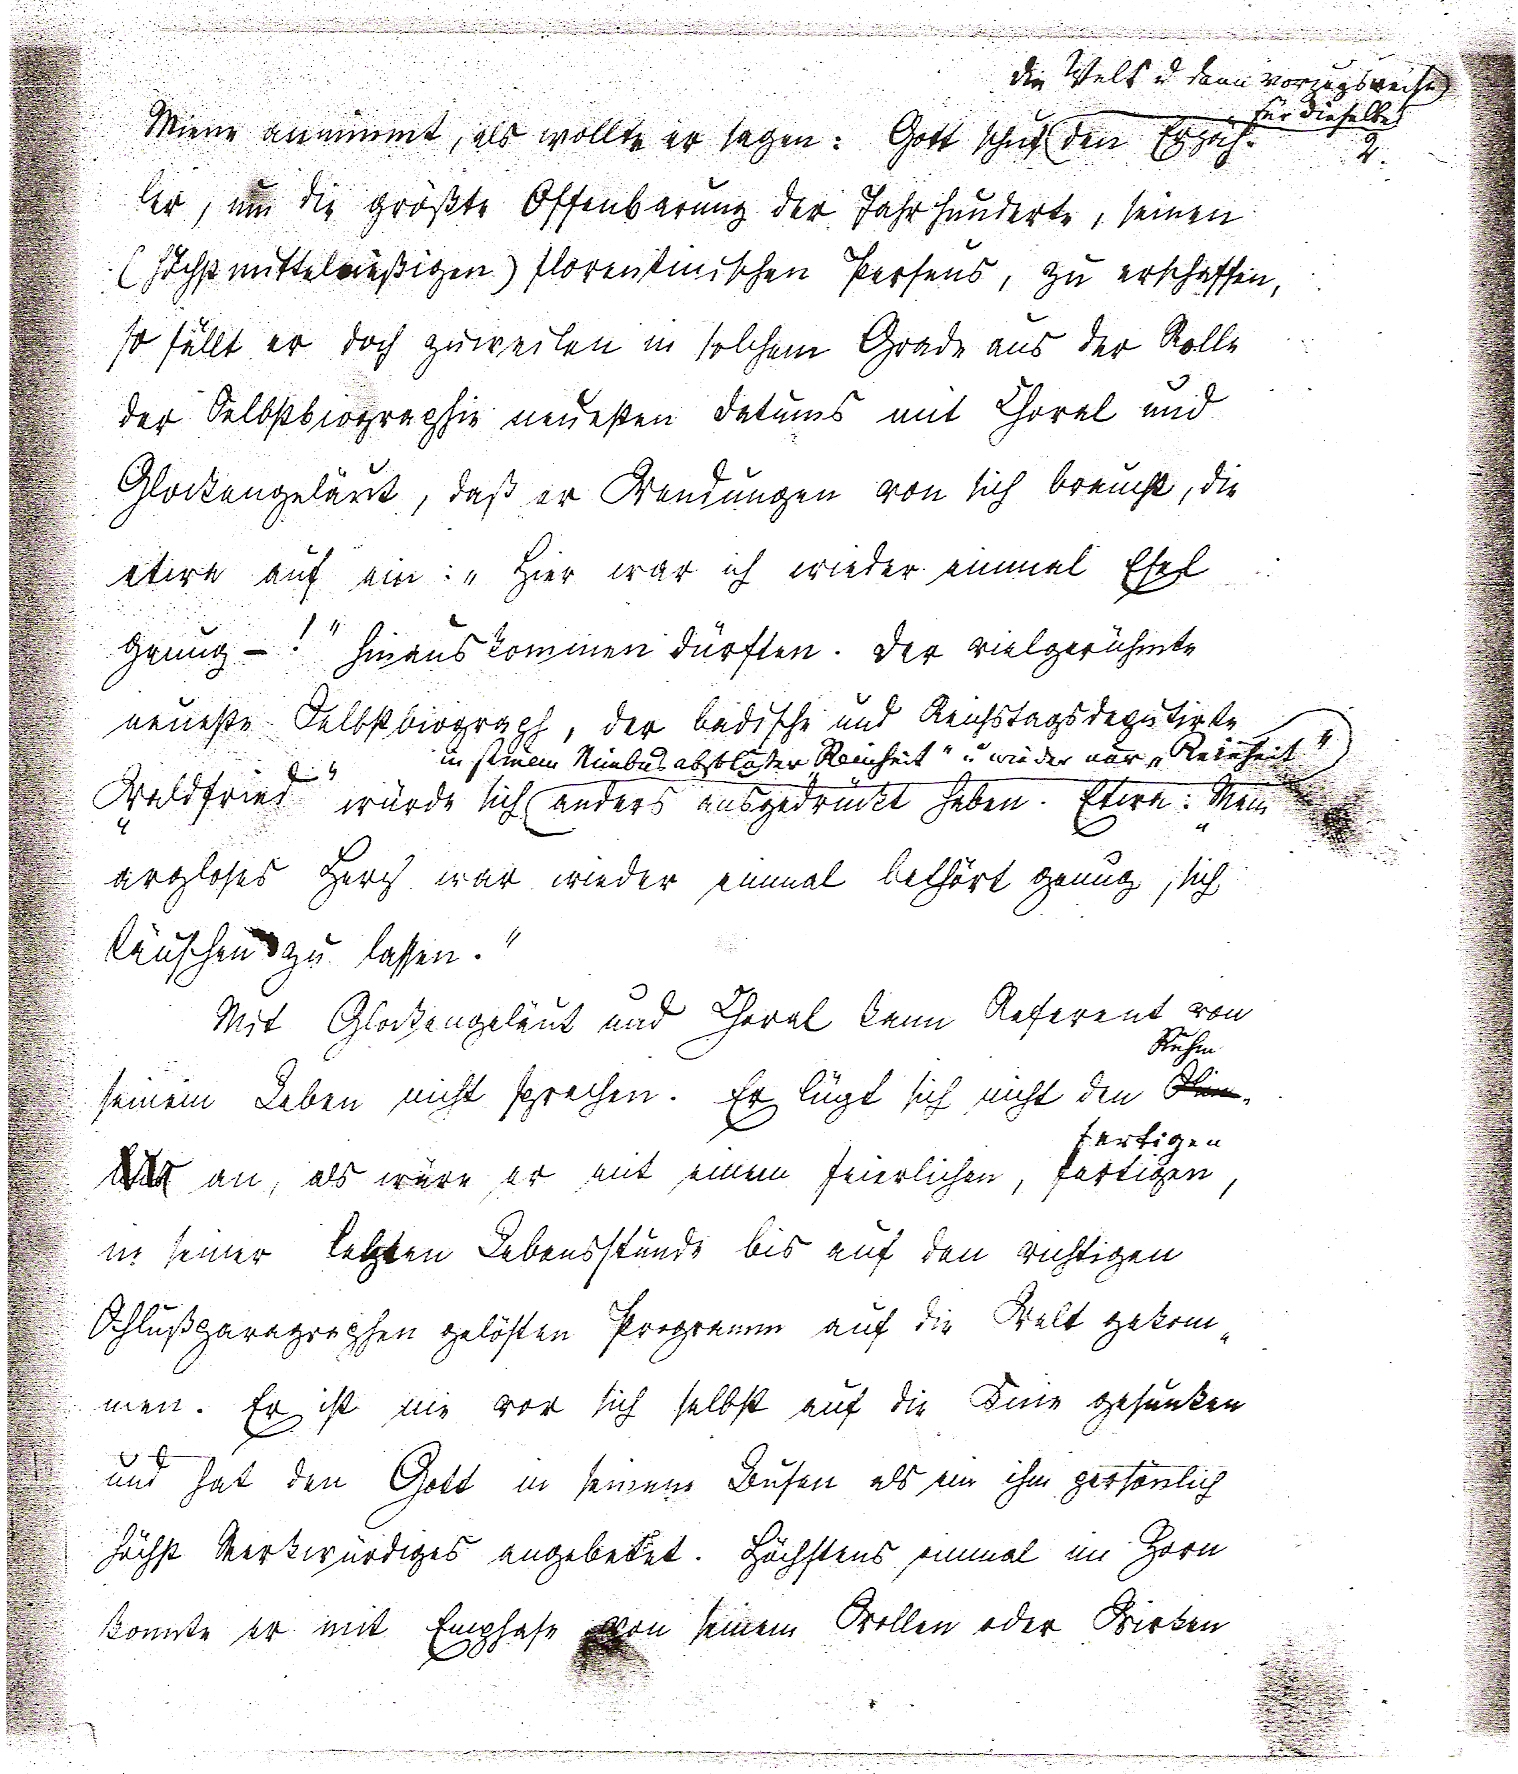 die Welt u dann vorzugsweise
für dieselbe
2.
Miene annimmt, als wollte er sagen: Gott schuf den Erzäh-
ler, um die größte Offenbarung der Jahrhunderte, seinen
(höchst mittelmäßigen) florentinischen Perseus, zu erschaffen,
so fällt er doch zuweilen in solchem Grade aus der Rolle
der Selbstbiographie neuesten Datums mit Choral und
Glockengeläut, daß er Wendungen von sich braucht, die
etwa auf ein: „Hier war ich wieder einmal Esel
genug –!" hinauskommen dürften. Der vielgerühmte
neueste Selbstbiograph, der badische und Reichstagsdeputirte
in seinem Nimbus absoluter „Reinheit" u wieder nur „Reinheit"
„Waldfried" würde sich anders ausgedrückt haben. Etwa: „Mein
argloses Herz war wieder einmal bethört genug, sich
täuschen zu lassen."
Mit Glockengeläut und Choral kann Referent von
Ruhm
seinem Leben nicht sprechen. Er lügt sich nicht den Nim-
bus an, als wäre er mit einem feierlichen, fertigen,
fertigen
in seiner letzten Lebensstunde bis auf den richtigen
Schlußparagraphen gelösten Programm auf die Welt gekom-
men. Er ist nie vor sich selbst auf die Knie gesunken
und hat den Gott in seinem Busen als ein ihm persönlich
höchst Merkwürdiges angebetet. Höchstens einmal im Zorn
konnte er mit Emphase von seinem Wollen oder Wirken